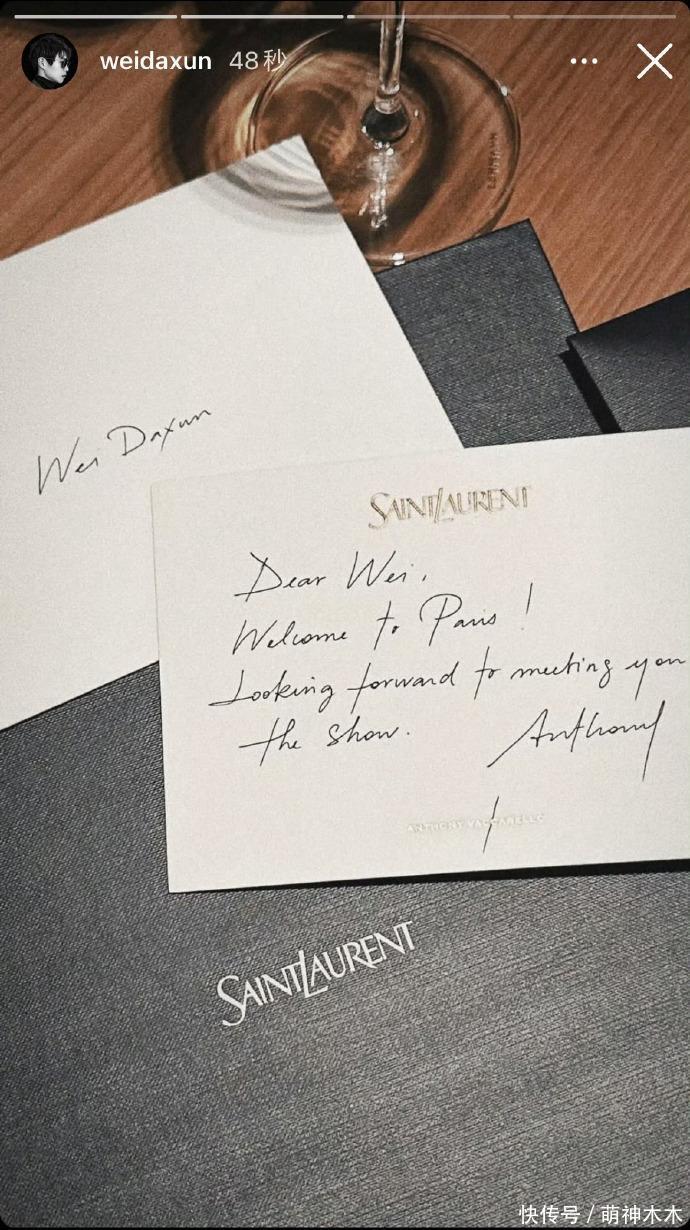 weidaxun 48秒
Wei Daxun
SAINT LAURENT
Dear Wei,
Welcome to Paris!
Looking forward to meeting you
the show.
Anthony
ANTHONY VACCARELLO
SAINT LAURENT
快传号 / 萌神木木